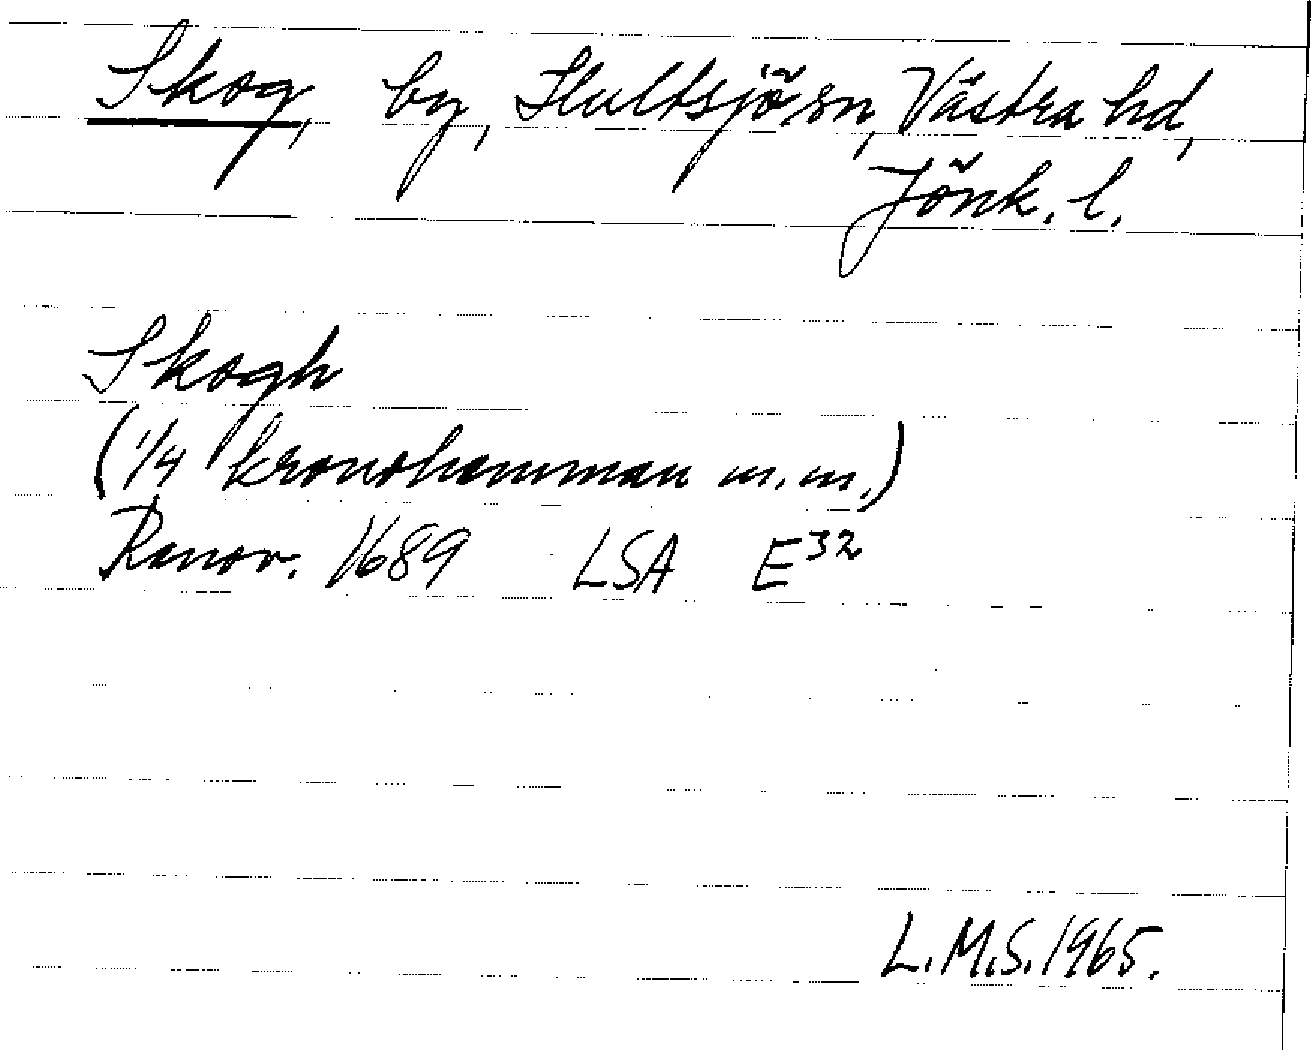 Skog, by, Hultsjö sn, Västra hd,
Jönk. l.
Skogh
(1/4 kronohemman m.m.)
Renov. 1689 LSA E³²
L.M.S. 1965.